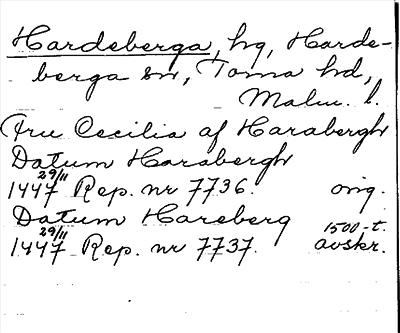 Hardeberga, hg, Harde-
berga sn, Torna hd,
Malm. l.
Fru Cecilia af Harabergh
Datum Harabergh
1447 29/11 Rep. nr 7736. orig.
Datum Hareberg
1447 29/11 Rep. nr 7737. 1500-t. avskr.